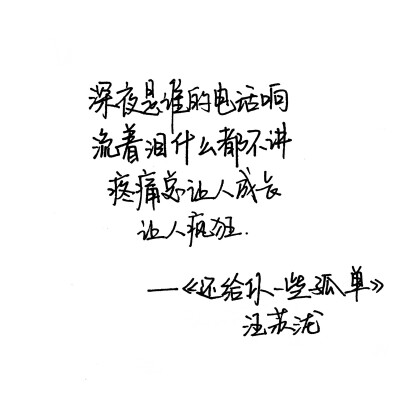 深夜是谁的电话响
流着泪什么都不讲
疼痛总让人成长
让人疯狂.
——《还给环一些孤单》
汪苏泷